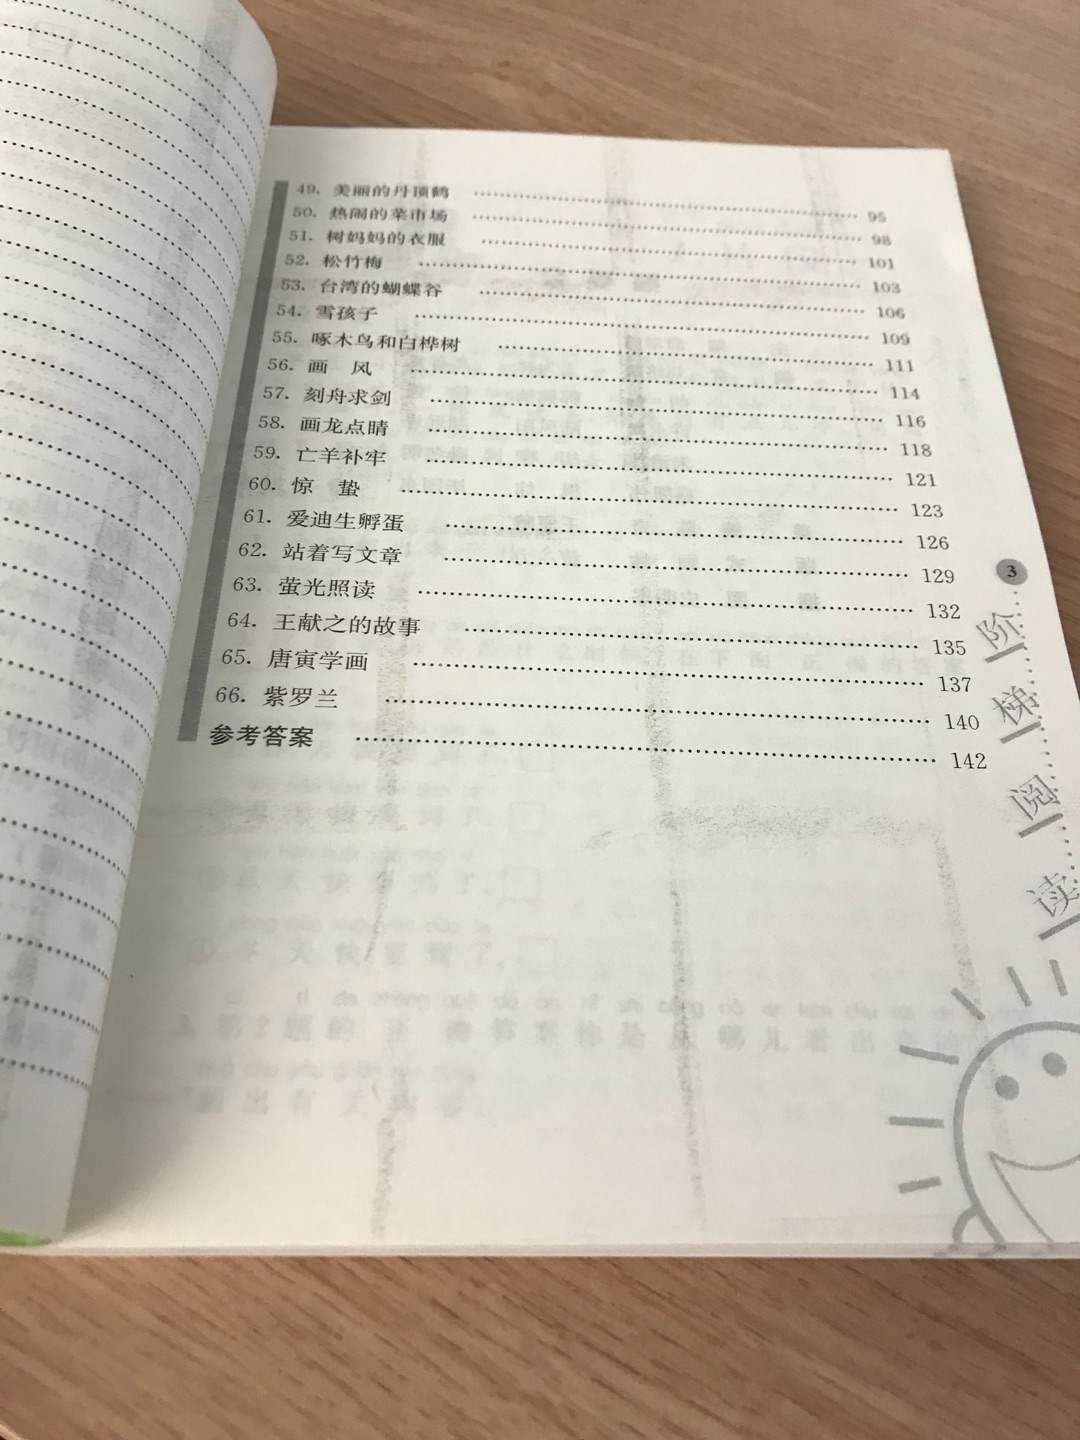 49. 美丽的丹顶鹤 …… 95
50. 热闹的菜市场 …… 98
51. 树妈妈的衣服 …… 101
52. 松竹梅 …… 103
53. 台湾的蝴蝶谷 …… 106
54. 雪孩子 …… 109
55. 啄木鸟和白桦树 …… 111
56. 画 风 …… 114
57. 刻舟求剑 …… 116
58. 画龙点睛 …… 118
59. 亡羊补牢 …… 121
60. 惊 蛰 …… 123
61. 爱迪生孵蛋 …… 126
62. 站着写文章 …… 129
63. 萤光照读 …… 132
64. 王献之的故事 …… 135
65. 唐寅学画 …… 137
66. 紫罗兰 …… 140
参考答案 …… 142
3
阶梯阅读